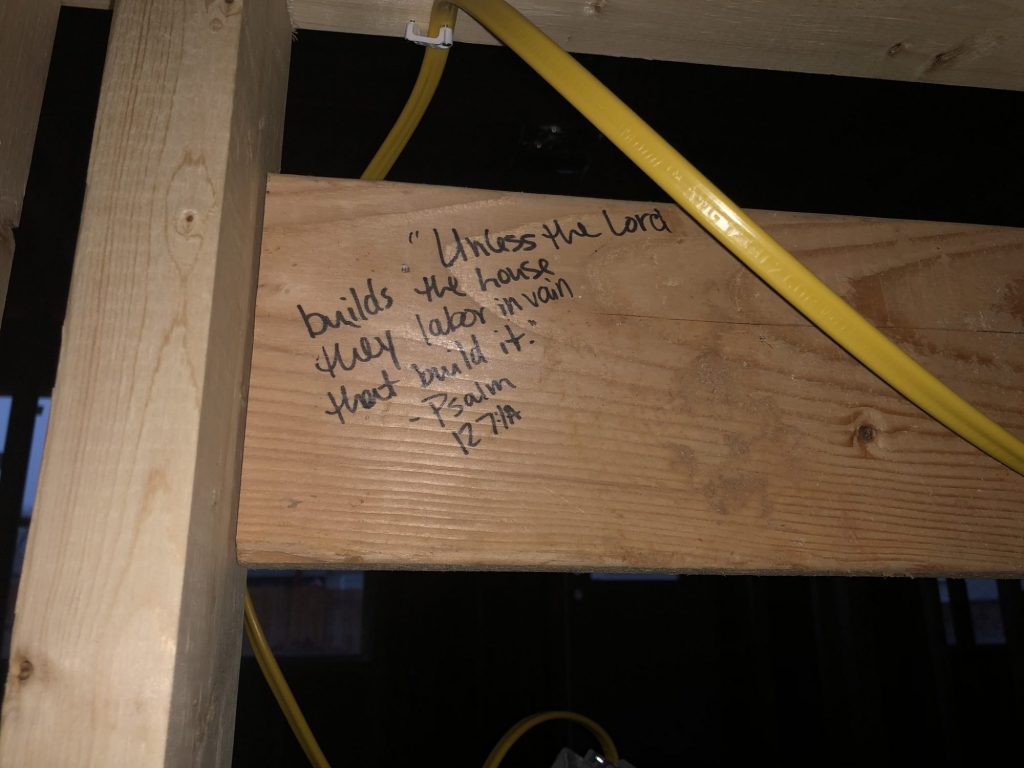 "Unless the Lord
builds the house
they labor in vain
that build it."
-Psalm
127:1A